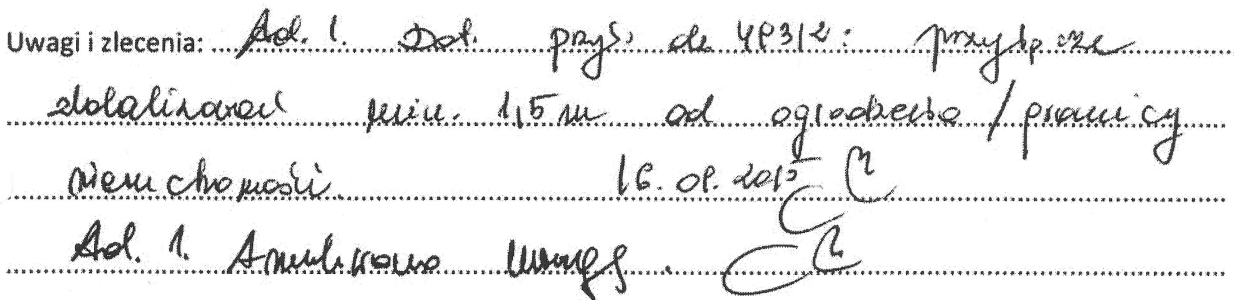 Uwagi i zlecenia: Ad. 1. Dot. przył. do 493/2: przyłącze
zlokalizować min. 1,5 m od ogrodzenia / granicy
nieruchomości. 16.09.2015
Ad. 1. Anulowano uwagę.